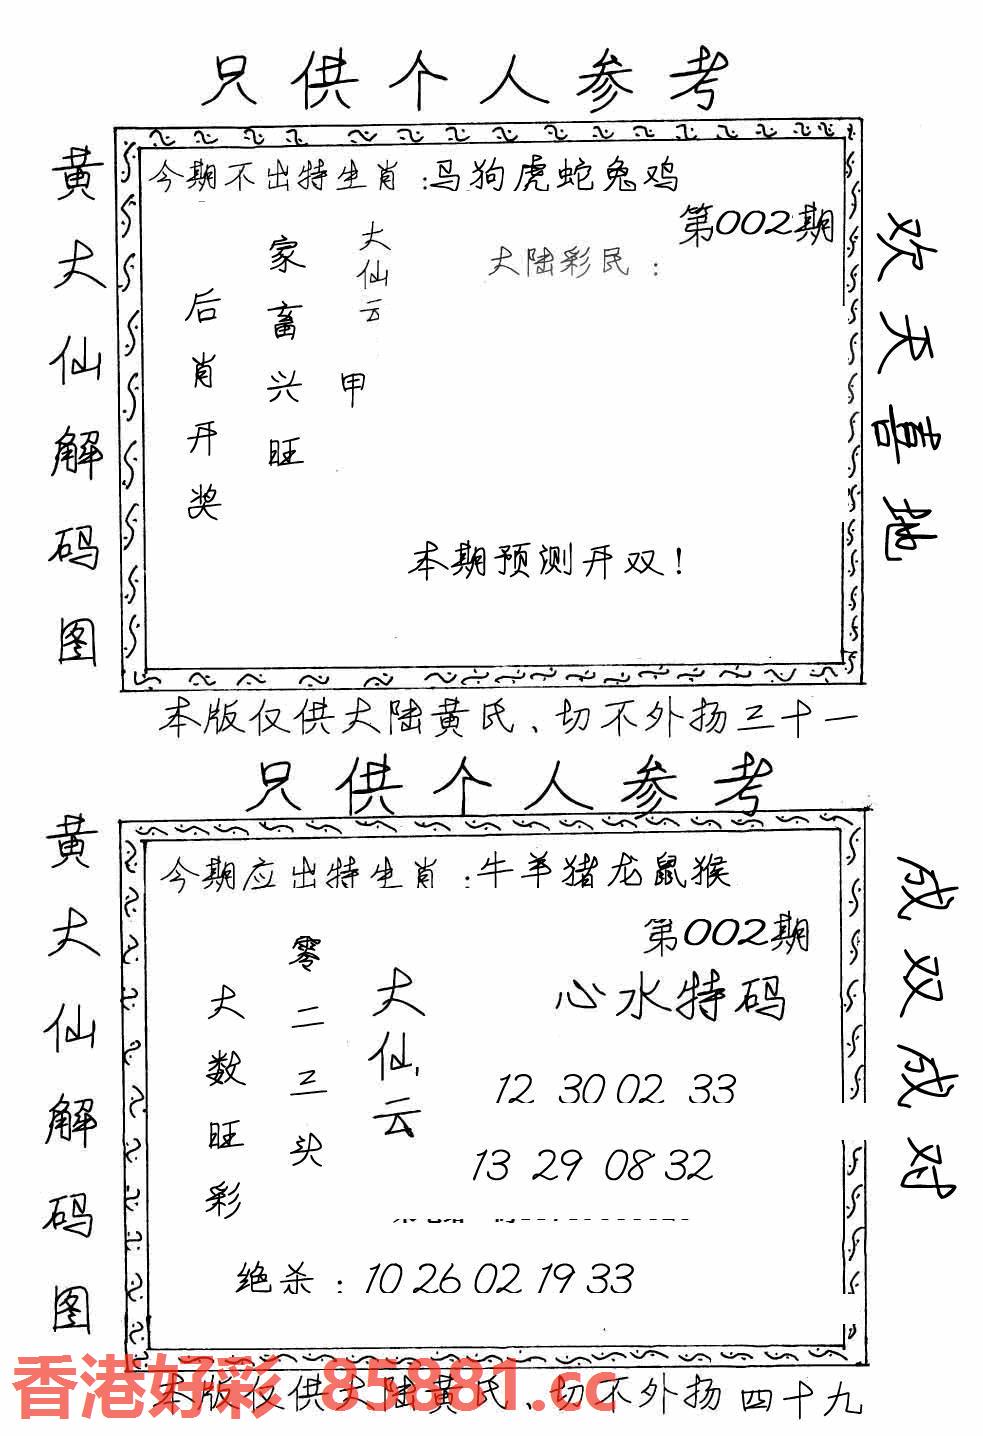 只供个人参考
黄大仙解码图
今期不出特生肖：马狗虎蛇兔鸡
第002期
大陆彩民：
大仙云
家畜兴旺
甲
后肖开奖
本期预测开双！
欢天喜地
本版仅供大陆黄氏、切不外扬三十一
只供个人参考
黄大仙解码图
今期应出特生肖：牛羊猪龙鼠猴
第002期
心水特码
大仙云
零二三头
大数旺彩
12 30 02 33
13 29 08 32
绝杀：10 26 02 19 33
成双成对
香港好彩 85881.cc
本版仅供大陆黄氏、切不外扬四十九